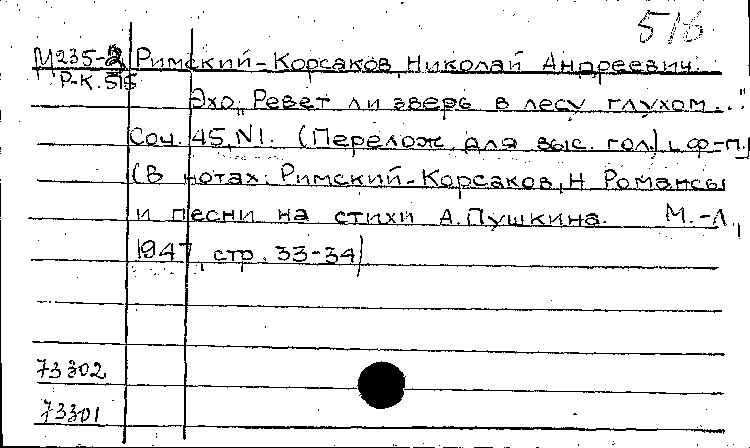 516
М235-2 Римский-Корсаков, Николай Андреевич.
Р-К. 515
Эхо „Ревет ли зверь в лесу глухом..."
Соч. 45, N1. (Перелож. для выс. гол.) и ф-п.
(В нотах: Римский-Корсаков, Н. Романсы
и песни на стихи А. Пушкина. М.-Л.,
1947, стр. 33-34)
73302
73301